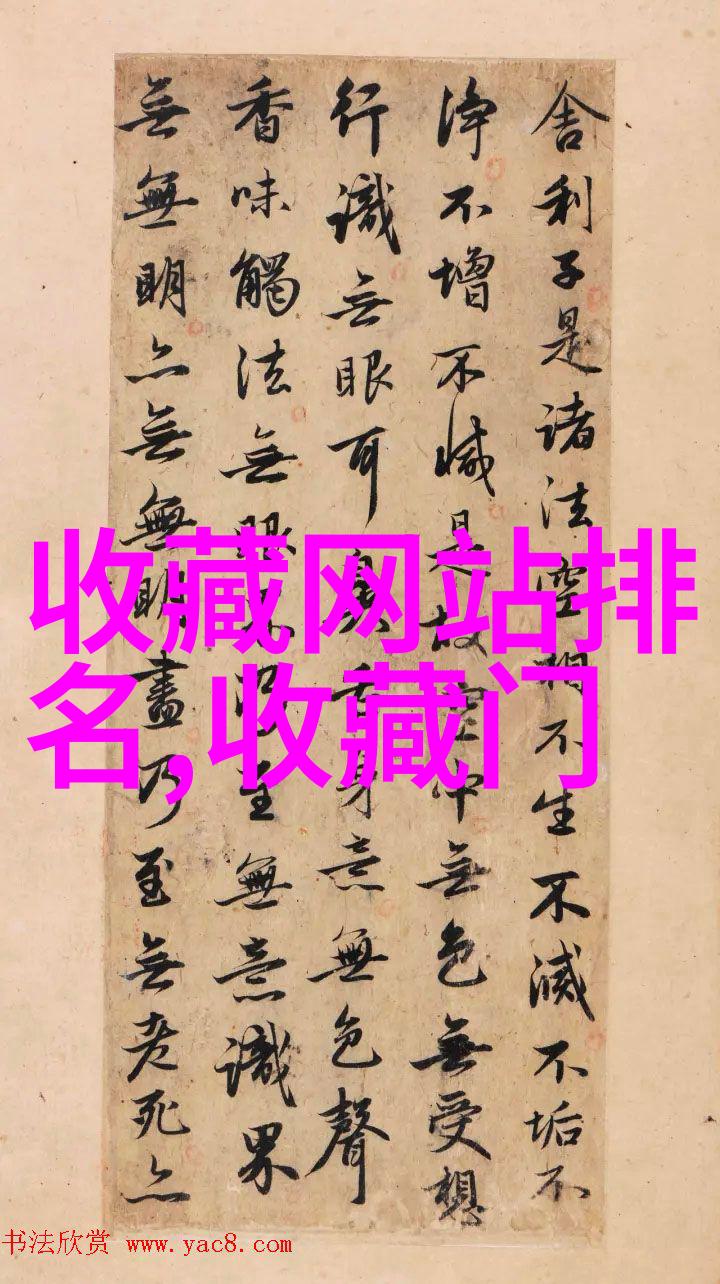 舍利子是諸法空相不生不滅不垢不
淨不增不減是故空中無色無受想
行識無眼耳鼻舌身意無色聲
香味觸法無眼界乃至無意識界
無無明亦無無明盡乃至無老死亦
收藏网站排
名,收藏门
书法欣赏 www.yac8.com